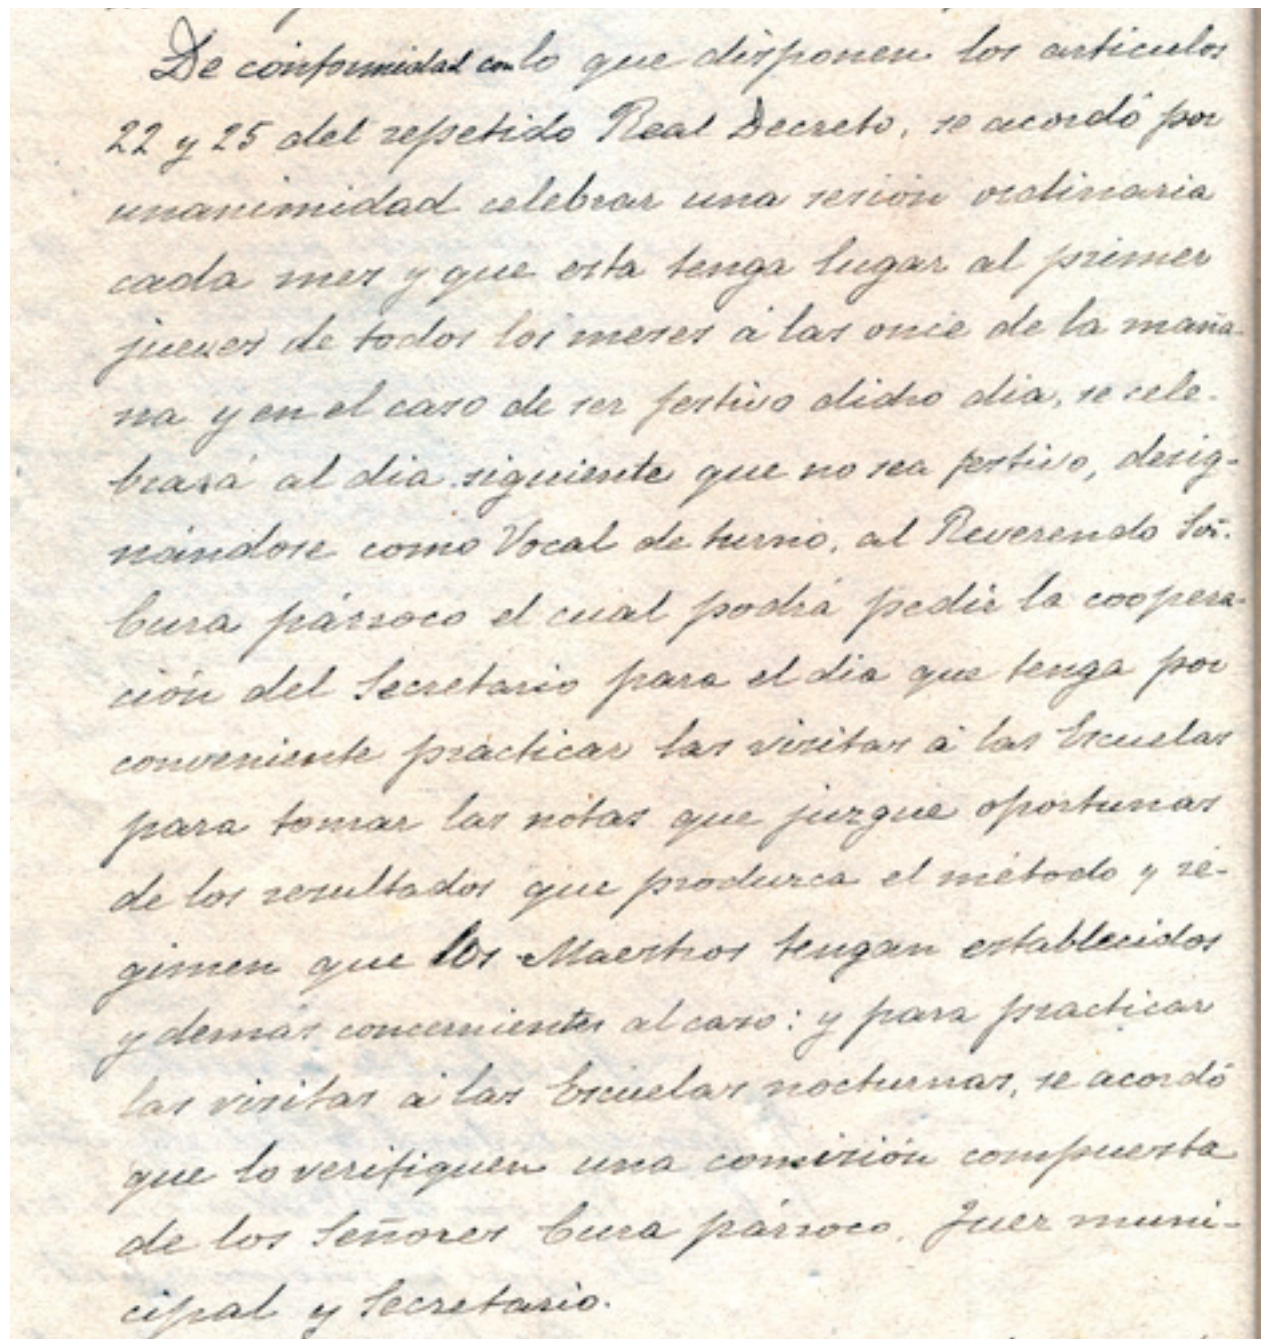 De conformidad con lo que disponen los articulos
22 y 25 del repetido Real Decreto, se acordó por
unanimidad celebrar una sesión ordinaria
cada mes y que esta tenga lugar al primer
jueves de todos los meses á las once de la maña-
na y en el caso de ser festivo dicho dia, se cele-
brará al dia siguiente que no sea festivo, desig-
nándose como Vocal de turno, al Reverendo Sor.
Cura párroco el cual podrá pedir la coopera-
ción del Secretario para el dia que tenga por
conveniente practicar las visitas á las Escuelas
para tomar las notas que juzgue oportunas
de los resultados que produzca el método y ré-
gimen que los Maestros tengan establecidos
y demás concernientes al caso: y para practicar
las visitas á las Escuelas nocturnas, se acordó
que lo verifiquen una comisión compuesta
de los Señores Cura párroco, Juez muni-
cipal y Secretario.